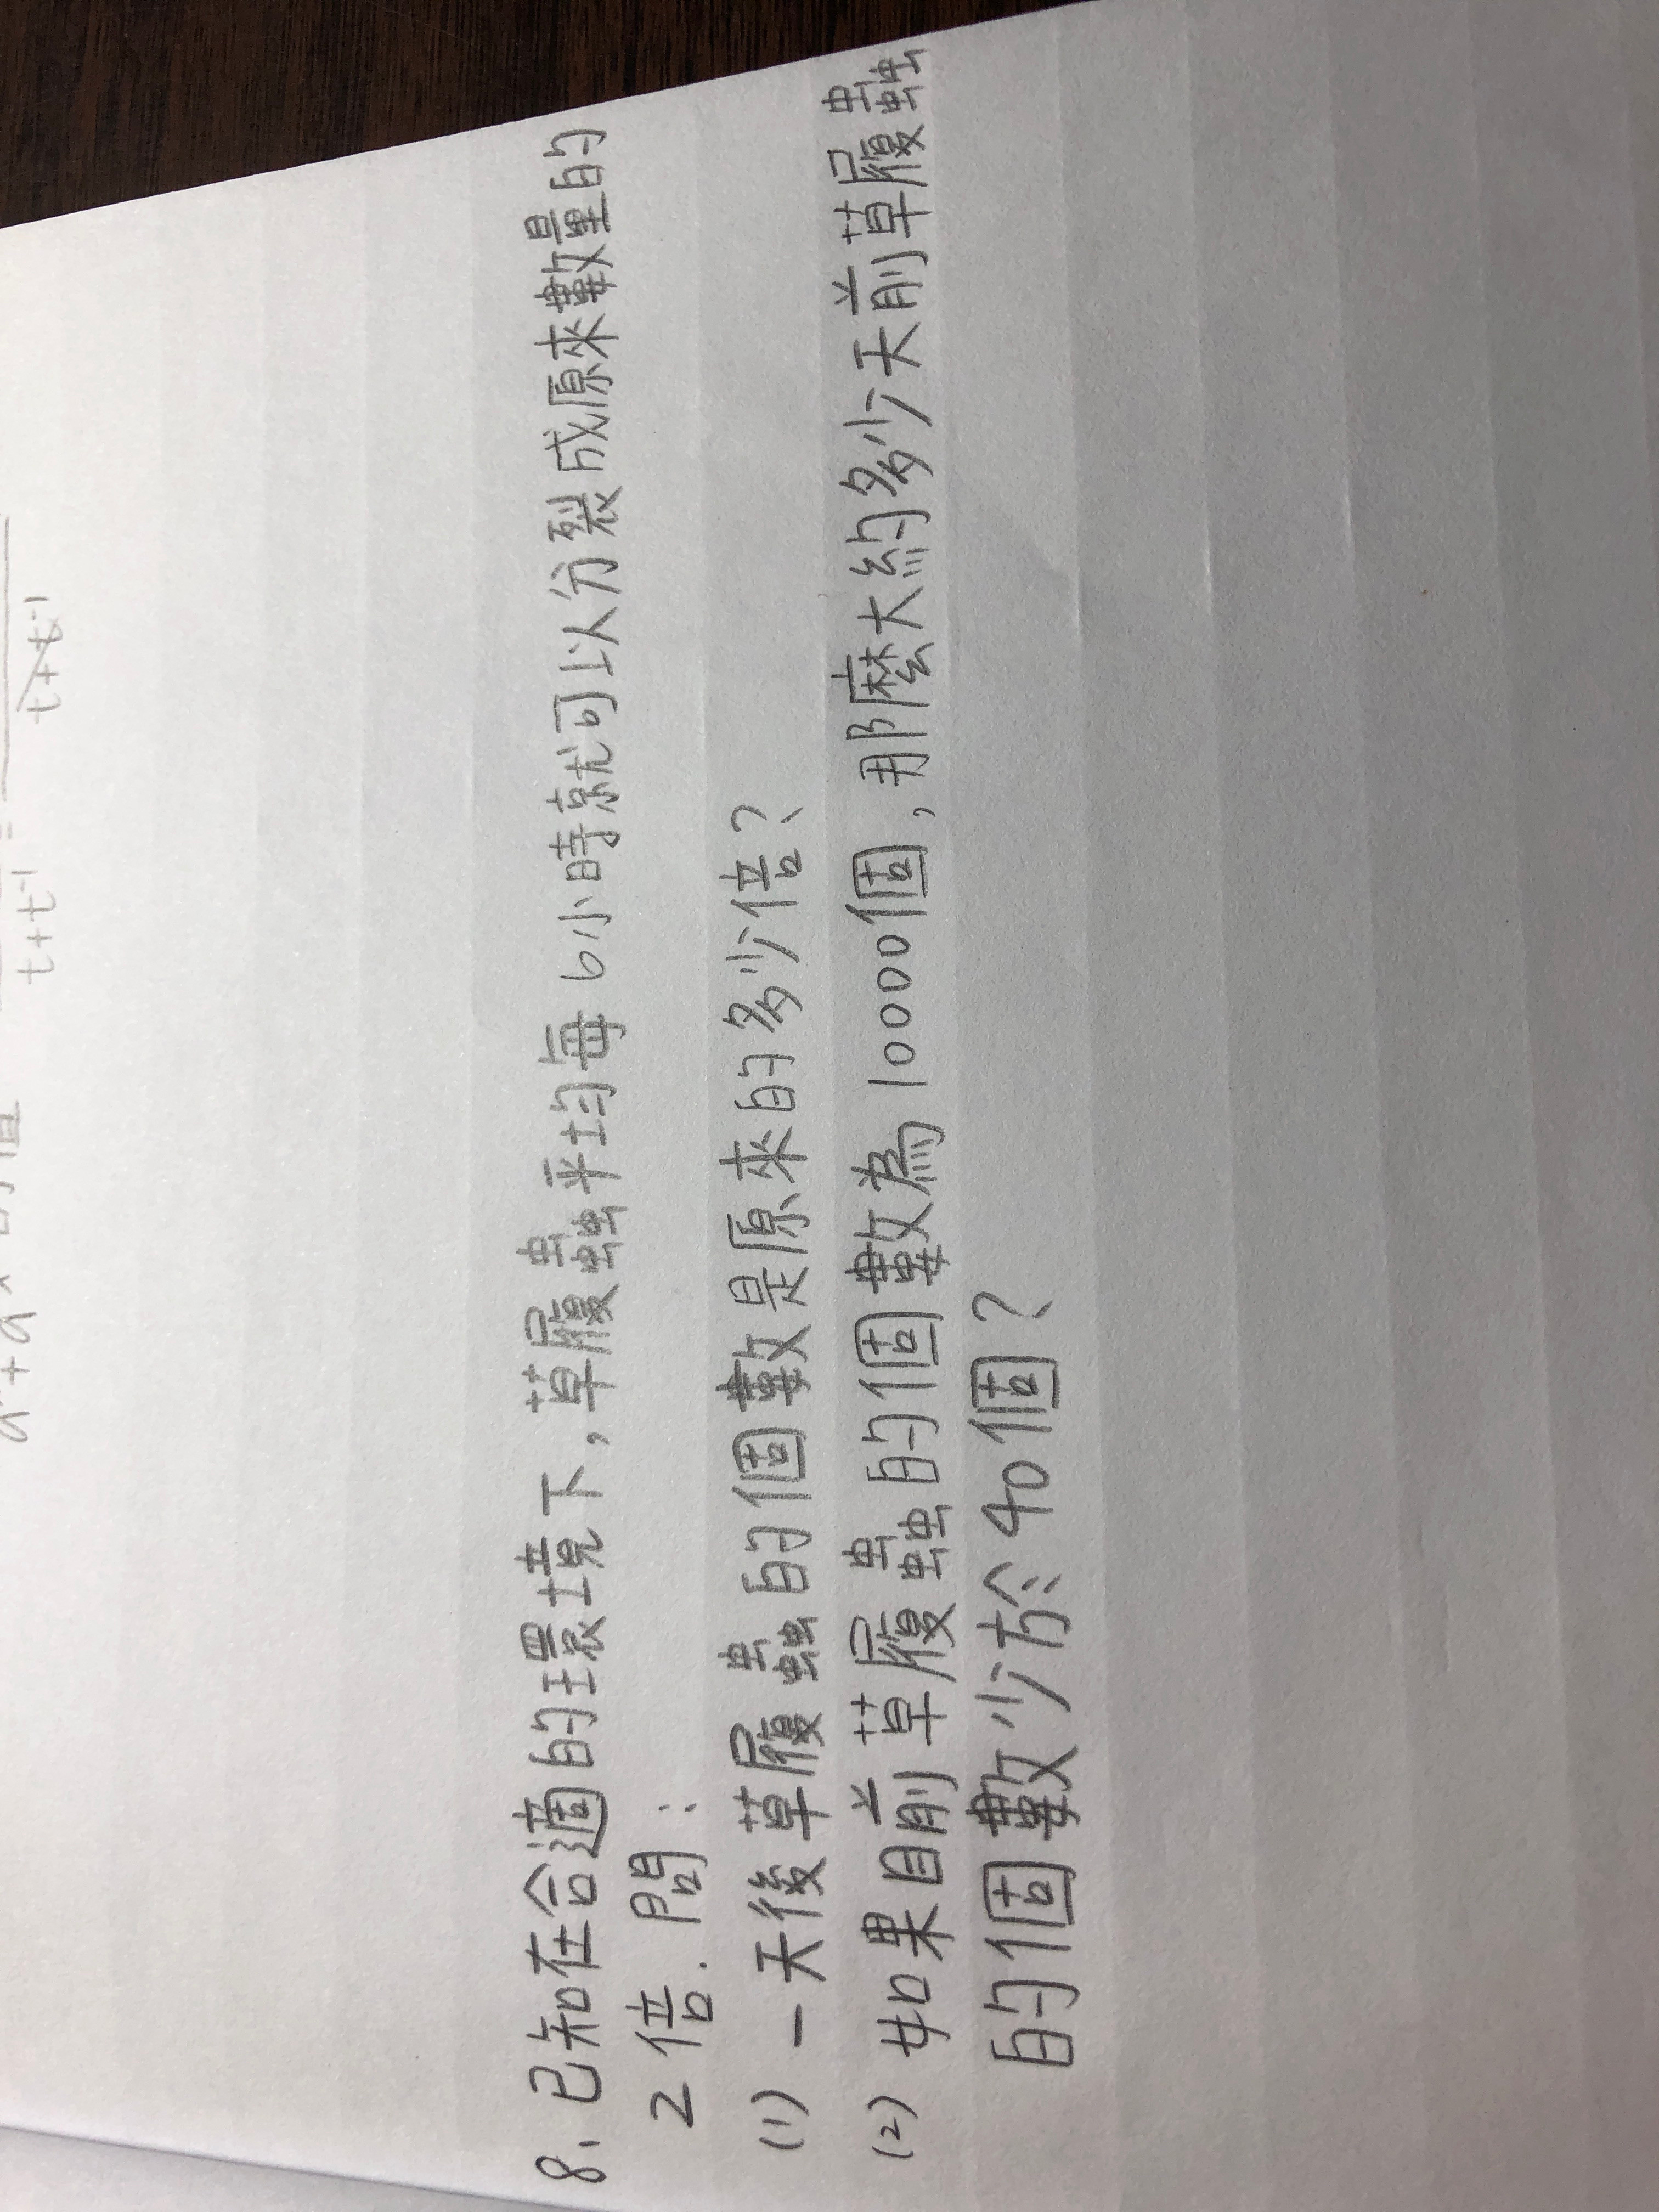 t+t⁻¹
t+t⁻¹
8、已知在合適的環境下,草履蟲平均每6小時就可以分裂成原來數量的
2倍.問:
(1) 一天後草履蟲的個數是原來的多少倍?
(2) 如果目前草履蟲的個數為10000個,那麼大約多少天前草履蟲
的個數少於40個?